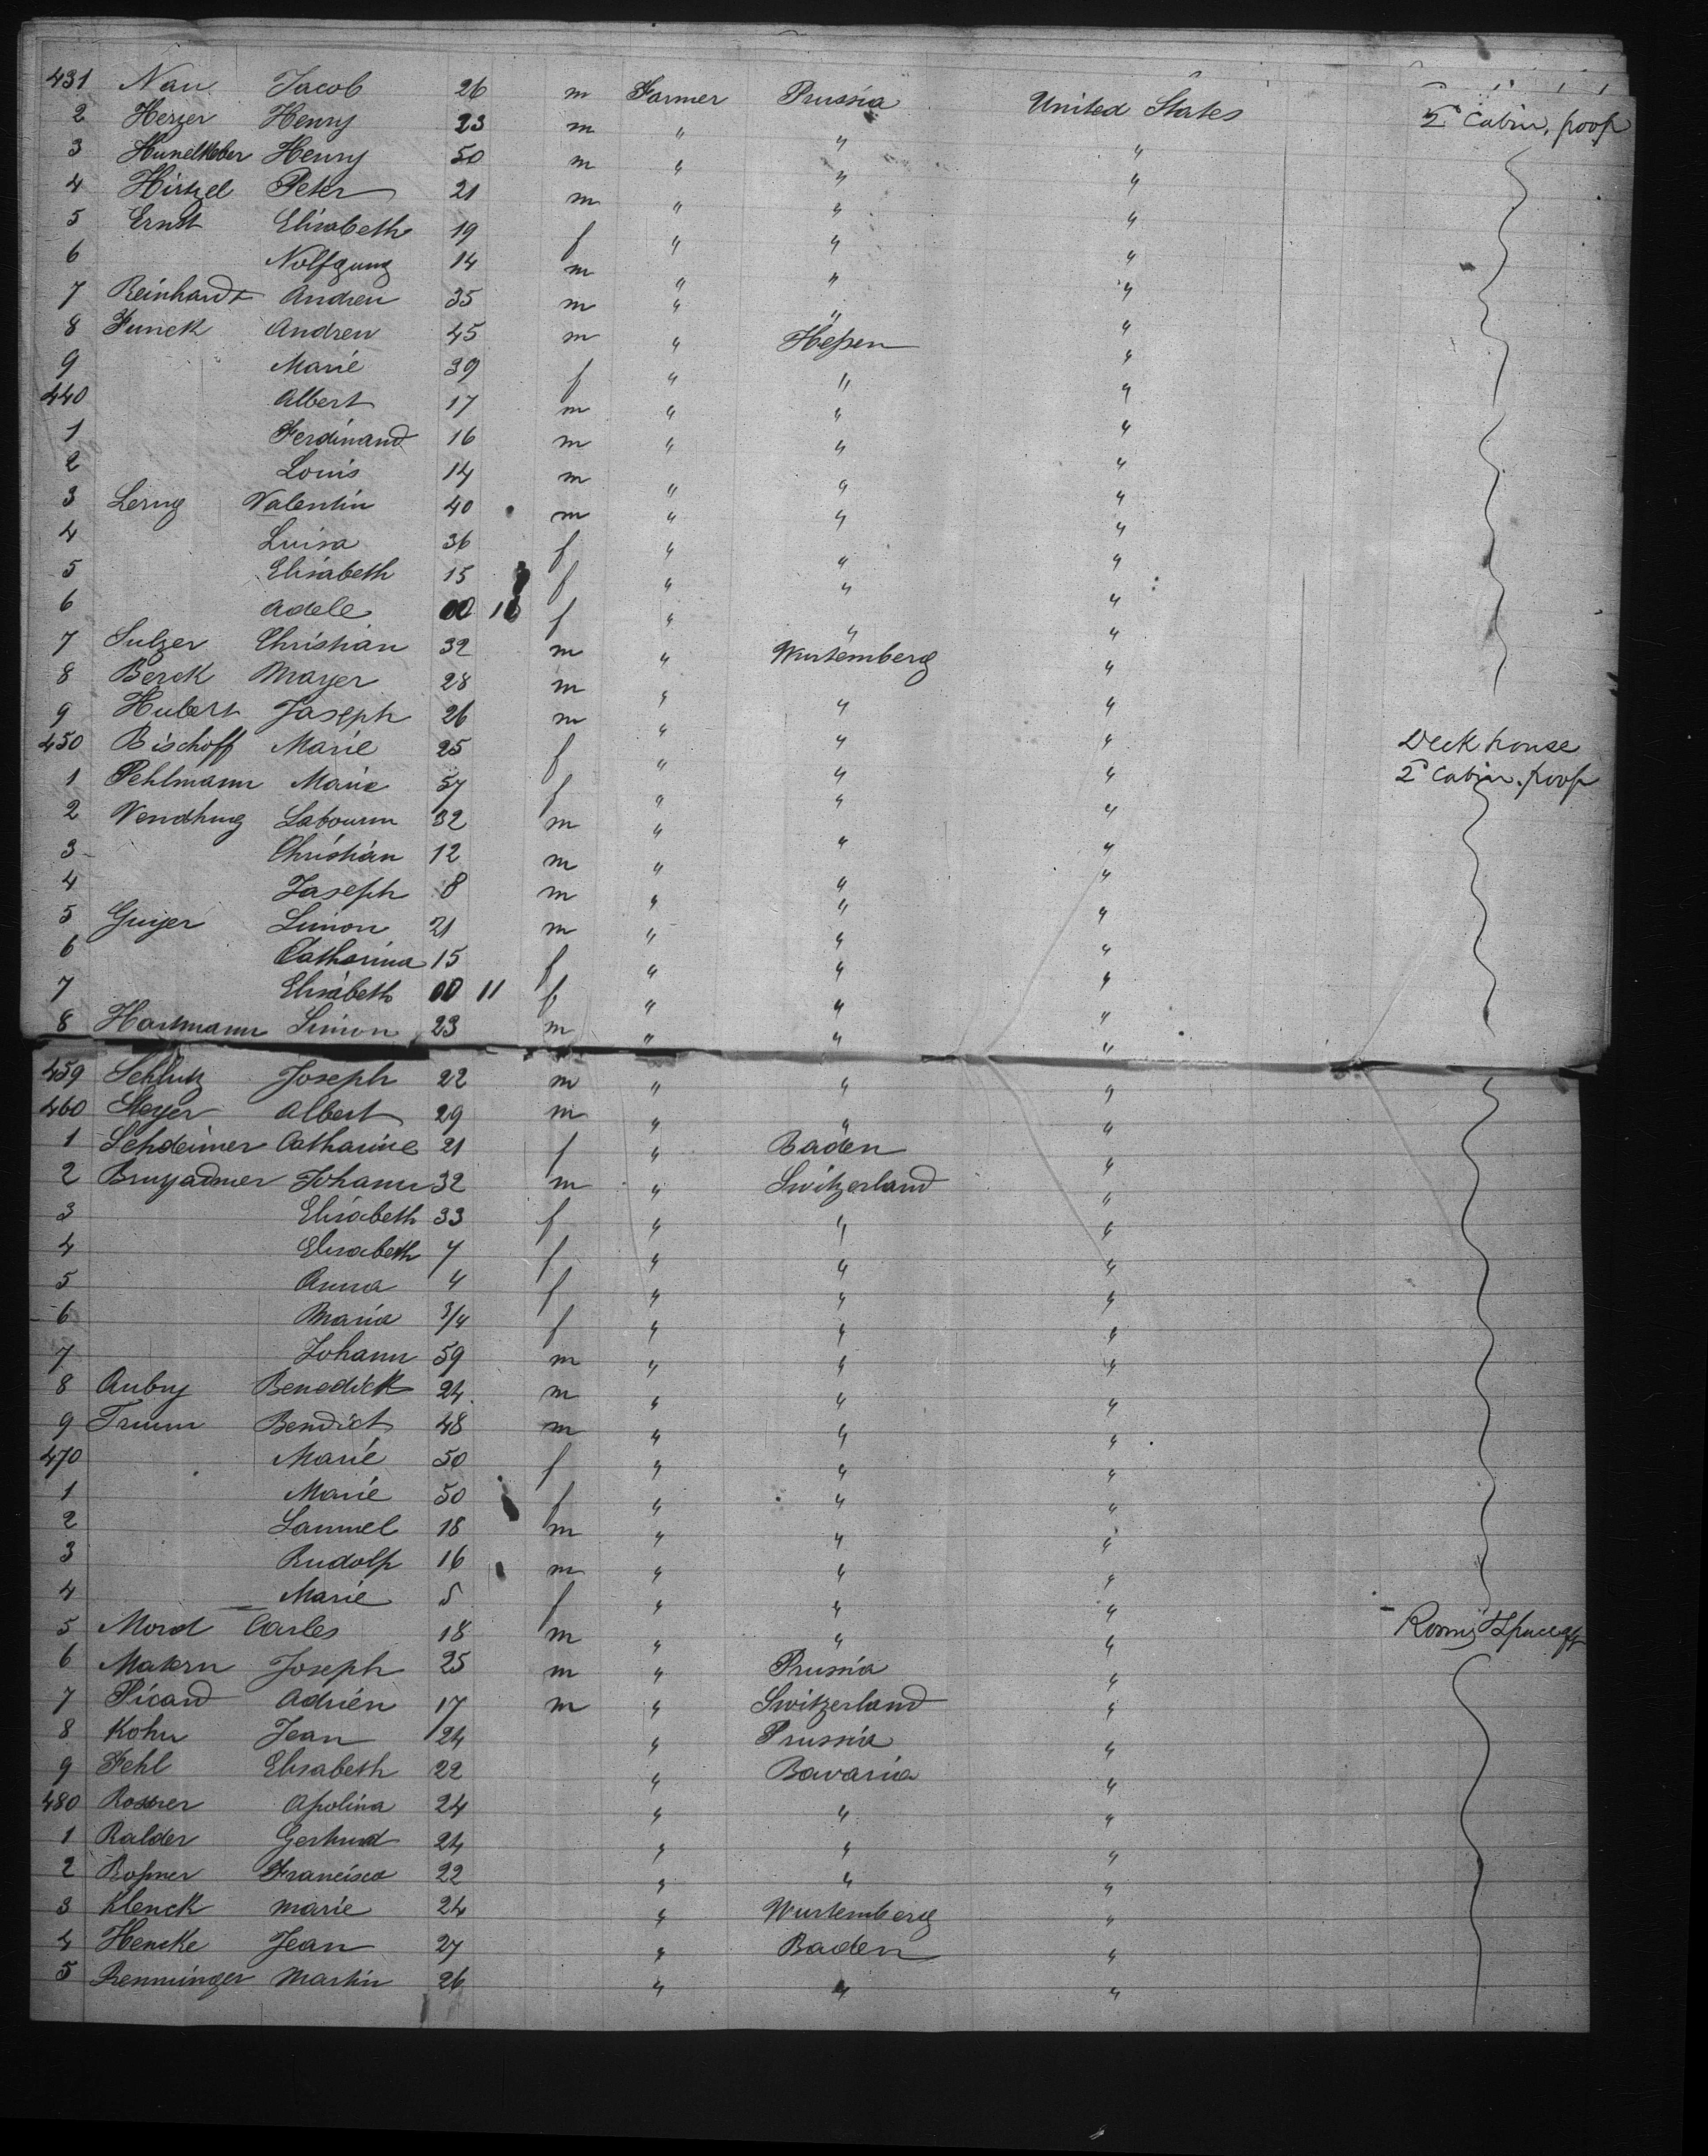 431 Nau Jacob 26 m Farmer Prussia United States 2d Cabin, poop
2 Herzer Henry 23 m " " "
3 Henry 50 m " " "
4 Hirtzel Peter 21 m " " "
5 Ernst Elisabeth 19 f " " "
6 Nolfgung 14 m " " "
7 Reinhardt Andreu 35 m " " "
8 Funck Andreu 45 m " Heßen "
9 Marie 39 f " " "
440 Albert 17 m " " "
1 Ferdinand 16 m " " "
2 Louis 14 m " " "
3 Lerng Valentin 40 m " " "
4 Luisa 36 f " " "
5 Elisabeth 15 f " " "
6 Adele f " " "
7 Sulzer Christian 32 m " Wurtemberg "
8 Berck Mayer 28 m " " "
9 Hubert Joseph 26 m " " "
450 Bischoff Marie 25 f " " " Deck house
1 Pehlmann Marie 57 f " " " 2d Cabin. poop
2 32 m " " "
3 Christian 12 m " " "
4 Joseph 8 m " " "
5 Simon 21 m " " "
6 Catharina 15 f " " "
7 Elisabeth 00 11 f " " "
8 Hartmann Simon 23 m " " "
459 Schlutz Joseph 22 m " " "
460 Steyer Albert 29 m " " "
1 Catharine 21 f " Baden "
2 Johann 32 m " Switzerland "
3 Elisabeth 33 f " " "
4 Elisabeth 7 f " " "
5 Anna 4 f " " "
6 Maria 3/4 f " " "
7 Johann 59 m " " "
8 Aubry Benedick 24 m " " "
9 Trumm Bendict 48 m " " "
470 Marie 50 f " " "
1 Marie 50 f " " "
2 Samuel 18 m " " "
3 Rudolf 16 m " " "
4 Marie 5 f " " "
5 Mord Carles 18 m " " "
6 Matern Joseph 25 m " Prussia "
7 Picard Adrien 17 m " Switzerland "
8 Kohn Jean 24 " Prussia "
9 Fehl Elisabeth 22 " Bavaria "
480 Rossrer Apolina 24 " " "
1 Ralder Gertrud 24 " " "
2 Roßner Francisca 22 " " "
3 Klenck Marie 24 " Wurtemberg "
4 Hencke Jean 27 " Baden "
5 Renninger Martin 26 " " "